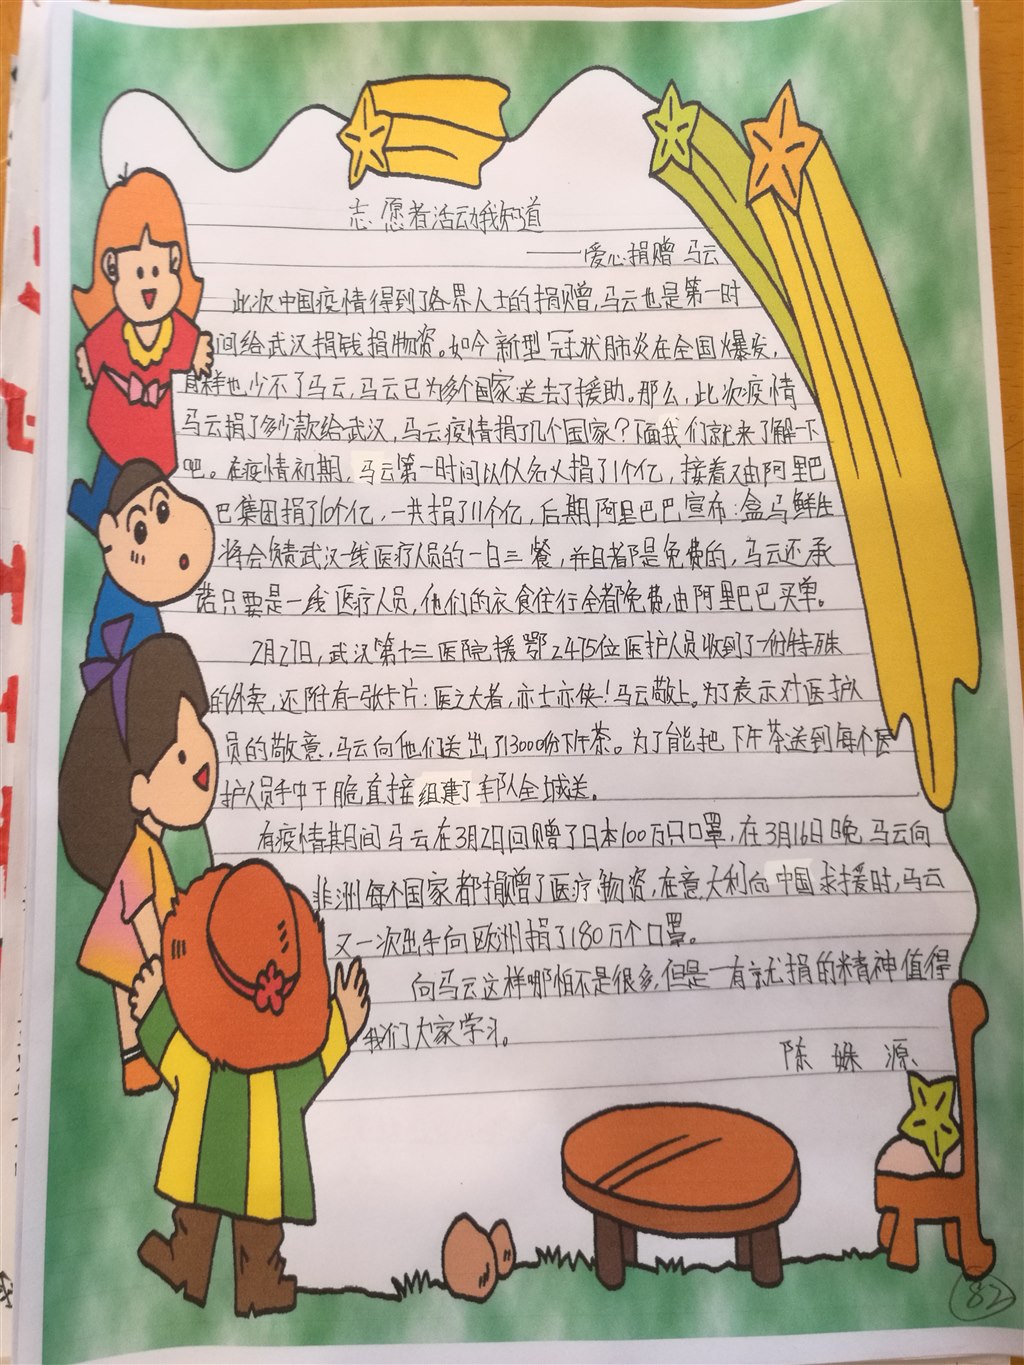 志愿者活动我知道
——爱心捐赠 马云
此次中国疫情得到了各界人士的捐赠,马云也是第一时
间给武汉捐钱捐物资。如今新型冠状肺炎在全国爆发,
同样也少不了马云,马云已为多个国家送去了援助。那么,此次疫情
马云捐了多少款给武汉,马云疫情捐了几个国家?下面我们就来了解一下
吧。在疫情初期,马云第一时间以个人名义捐了1个亿,接着又由阿里巴
巴集团捐了10个亿,一共捐了11个亿,后期阿里巴巴宣布:盒马鲜生
将会负责武汉一线医疗人员的一日三餐,并且都是免费的,马云还承
诺只要是一线医疗人员,他们的衣食住行全都免费,由阿里巴巴买单。
2月27日,武汉第十三医院援鄂2475位医护人员收到了一份特殊
的外卖,还附有一张卡片:医之大者,亦士亦侠!马云敬上。为了表示对医护人
员的敬意,马云向他们送出了13000份下午茶。为了能把下午茶送到每个医
护人员手中干脆直接组建了车队全城送。
有疫情其间马云在3月2日回赠了日本100万只口罩,在3月16日晚马云向
非洲每个国家都捐赠了医疗物资,在意大利向中国求援时,马云
又一次出手向欧洲捐了180万个口罩。
向马云这样哪怕不是很多,但是一有就捐的精神值得
我们大家学习。
陈姝源
82